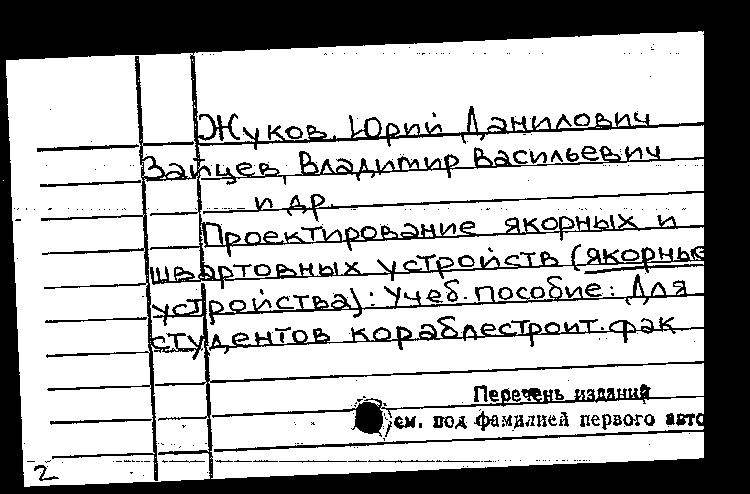 Жуков, Юрий Данилович
Зайцев, Владимир Васильевич
и др.
Проектирование якорных и
швартовных устройств (якорные
устройства): Учеб. пособие: Для
студентов кораблестроит. фак
Перечень изданий
см. под фамилией первого авто
2